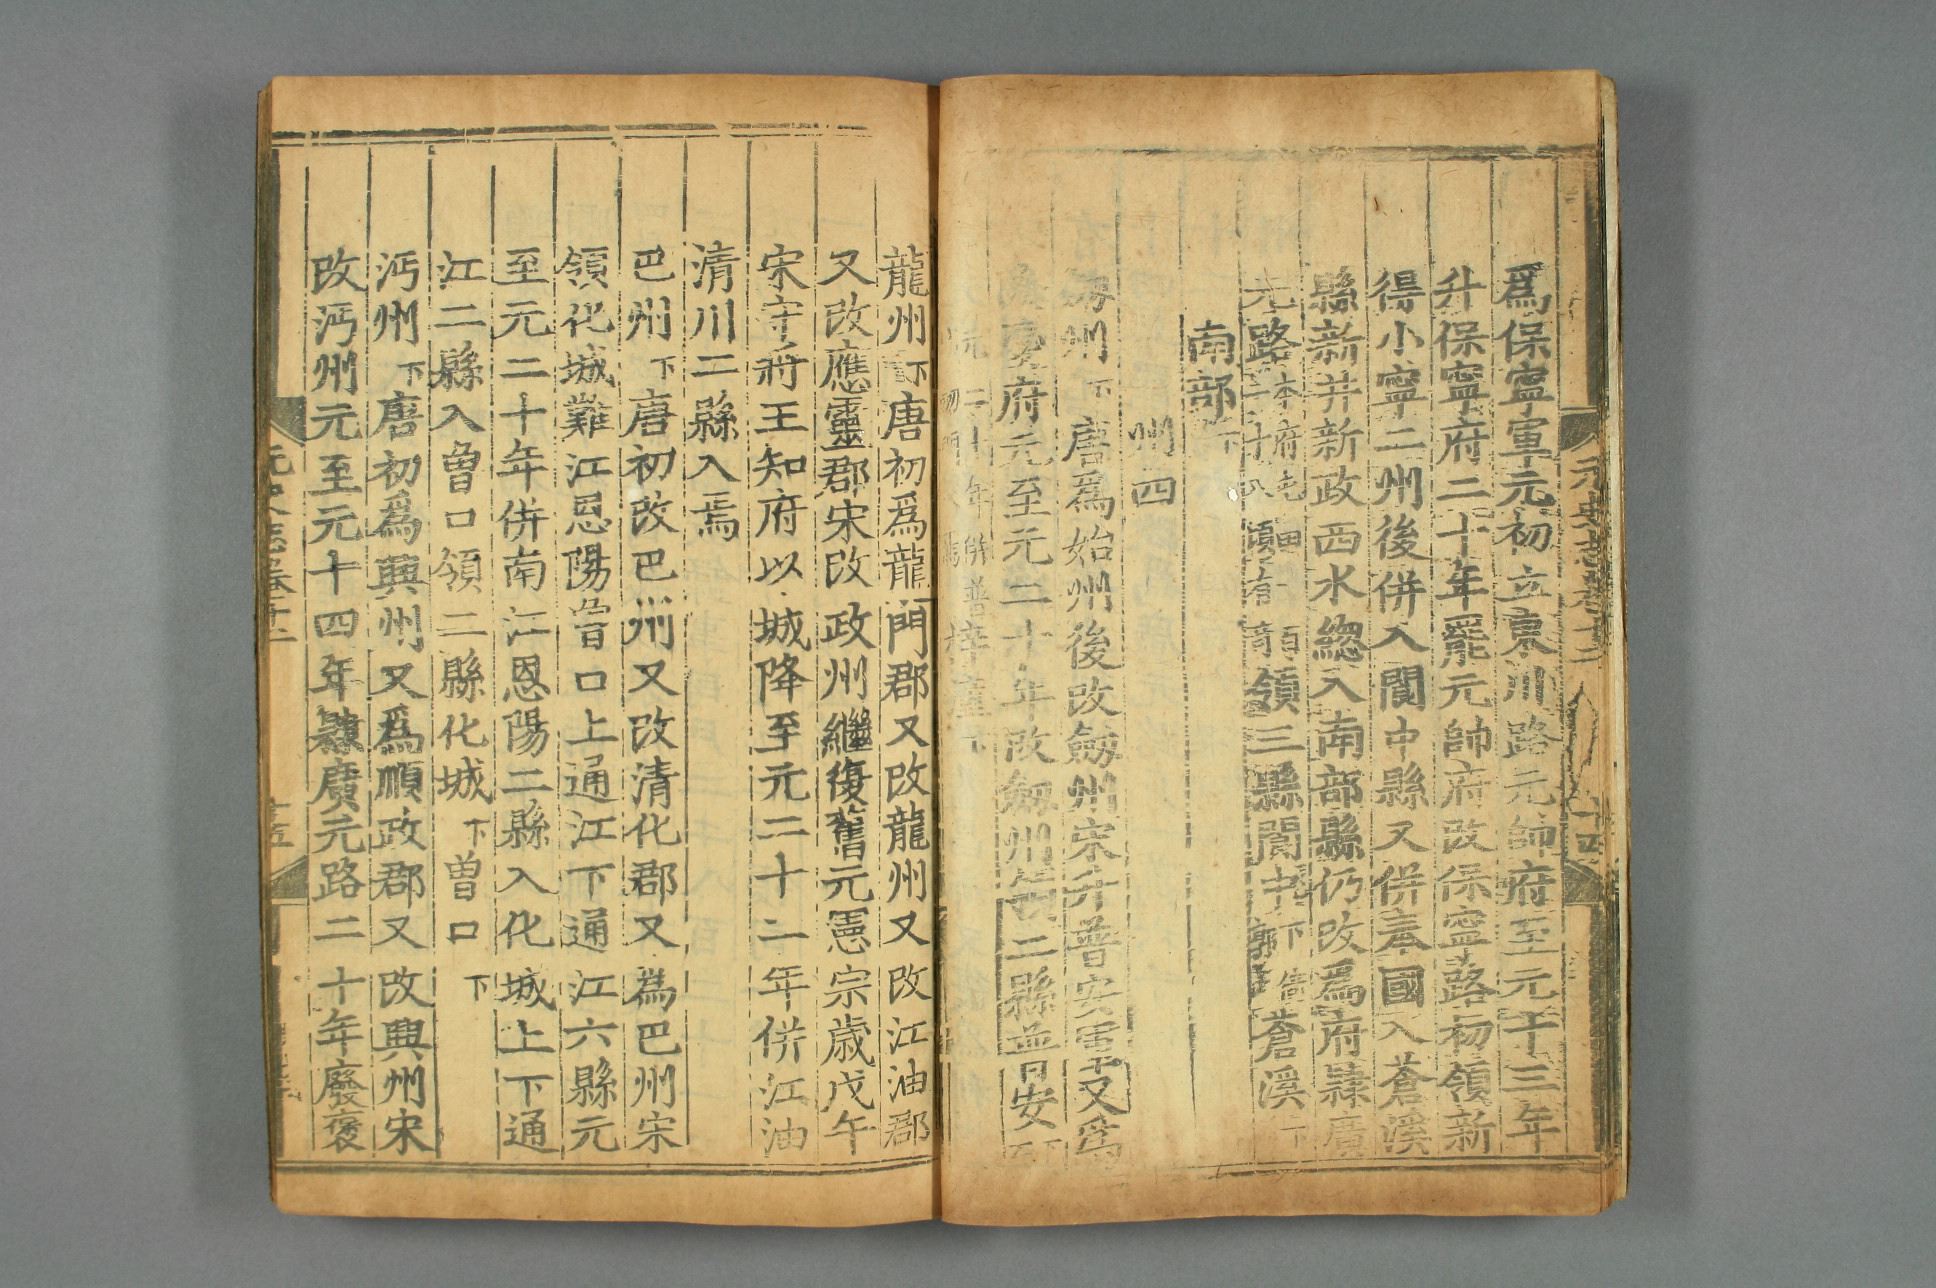 爲保寧軍元初立東川路元帥府至元十三年
升保寧府二十年罷元帥府改保寧路初領新
得小寧二州後併入閬中縣又併奉國入蒼溪
縣新井新政西水緫入南部縣仍改爲府隷廣
元路本府屯田領三縣閬中下倚郭蒼溪下
南部下
州四
劒州下唐爲始州後改劒州宋升普安軍又爲
慶府元至元二十年改劒州二縣普安下
梓潼下
龍州下唐初爲龍門郡又改龍州又改江油郡
又改應靈郡宋改政州繼復舊元憲宗歲戊午
宋守將王知府以城降至元二十二年併江油
清川二縣入焉
巴州下唐初改巴州又改清化郡又爲巴州宋
領化城難江恩陽曾口上通江下通江六縣元
至元二十年併南江恩陽二縣入化城上下通
江二縣入曾口領二縣化城下曾口下
沔州下唐初爲興州又爲順政郡又改興州宋
改沔州元至元十四年隷廣元路二十年廢褒